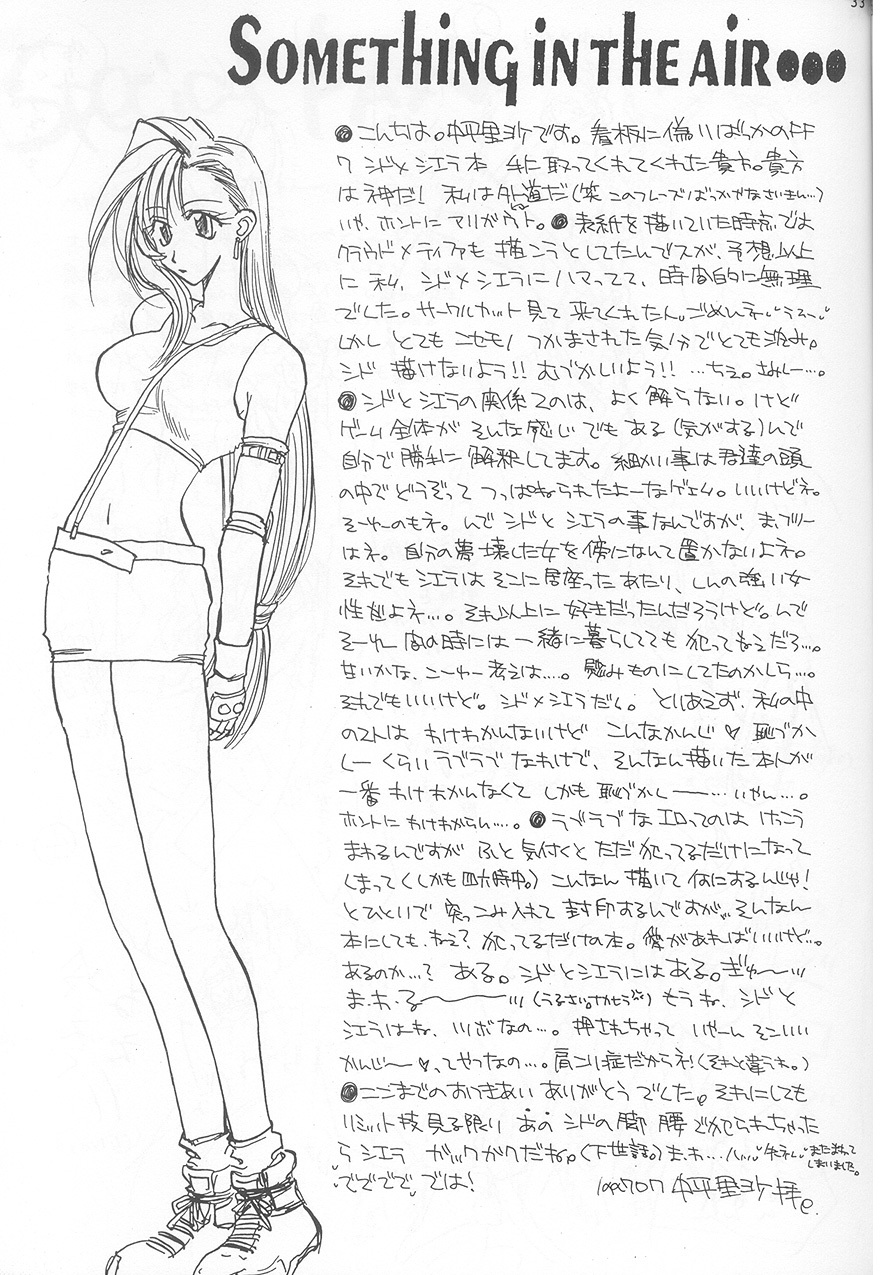 33
SOMETHING IN THE AIR●●●
●こんちは。中平里沙です。看板に偽りばっかのFF
7 シド×シエラ本 手に取ってくれてくれた貴方。貴方
は神だ! 私は外道だ(笑 このフレーズばっかかなさいきん…)
いや、ホントに アリガウト。●表紙を描いていた時点では
クラウド×ティファも 描こうとしてたんでスが、予想以上
に 私、シド×シエラに ハマってて、時間的に無理
でした。サークルカット見て 来てくれたん、ごめんネ、うぅ〜、
しかし とても ニセモノ つかまされた気分でとても沈み。
シド 描けないよう!! むづかしいよう!! …ちぇ。さみしー…。
●シドとシエラの関係つのは、よく解らない。けど
ゲーム全体が そんな感じ でもある(気がする)んで
自分で勝手に解釈してます。細かい事は君達の頭
の中でどうぞって つっぱねられたよーなゲェム。いいけどネ。
そーゆーのもネ。んで シドと シエラの事なんですが、ま、フツー
はネ。自分の夢壊した女を傍になんて置かないよネ。
それでもシエラは そこに居座った あたり、しんの強い女
性だよネ…。それ以上に好きだったんだろうけど。んで
そーゆー 間の時には一緒に暮らしてても 犯ってもぇだろ…。
甘いかな、こーゆー考えは…。慰みものにしてたのかしら…。
それでもいいけど。シド×シエラだし。とりあえず、私の中
の2人は わけわかんないけど こんなかんじ♡ 恥づか
しー くらいラブラブ なわけで、そんなん描いた本人が
一番 わけわかんなくて しかも 恥づかしー――… いやん…。
ホントに わけわからん…。●ラブラブなエロってのは けっこう
まわるんですが ふと気付くと ただ犯ってるだけになって
しまって(しかも四六時中。) こんなん 描いて何にするんじゃ!
とひといで 突っこみ入れて 封印するんですが、そんなん
本にしても、ねえ? 犯ってるだけの本。愛があればいいけど…。
あるのか…? ある。シドとシエラにはある。ぎゅ〜ぃぃ
ま・わ・る〜〜〜ぃぃ (うるさい。) もうね、シドと
シエラはね、ツボなの…。押されちゃって いや〜ん そこいい
かんじ〜♡、ってやつなの…。肩こり症だからネ!(それと違うわ。)
●ここまでのおつきあい ありがとう でした。それにしても
リミット技見る限り あの シドの脚 腰 でかせられちゃった
ら シエラ ガックガクだね。(下世話。) ま、わ… ハッ、失ネし、またまわって しまいました。
でででで では!
199707 中平里沙拝e.